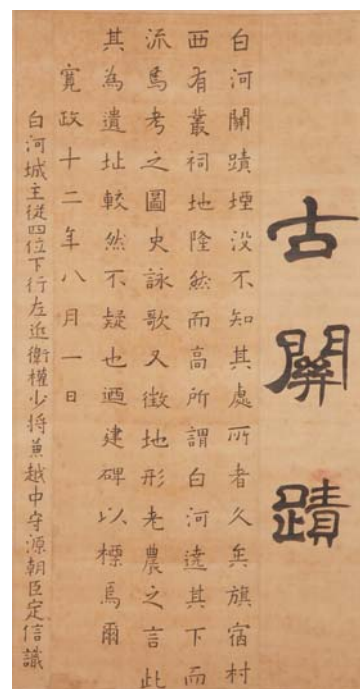 古關蹟
白河關蹟堙没不知其處所者久矣旗宿村
西有叢祠地隆然而高所謂白河遶其下而
流焉考之圖史詠歌又徴地形老農之言此
其為遺址較然不疑也廼建碑以標焉爾
寛政十二年八月一日
白河城主從四位下行左近衛權少将兼越中守源朝臣定信識